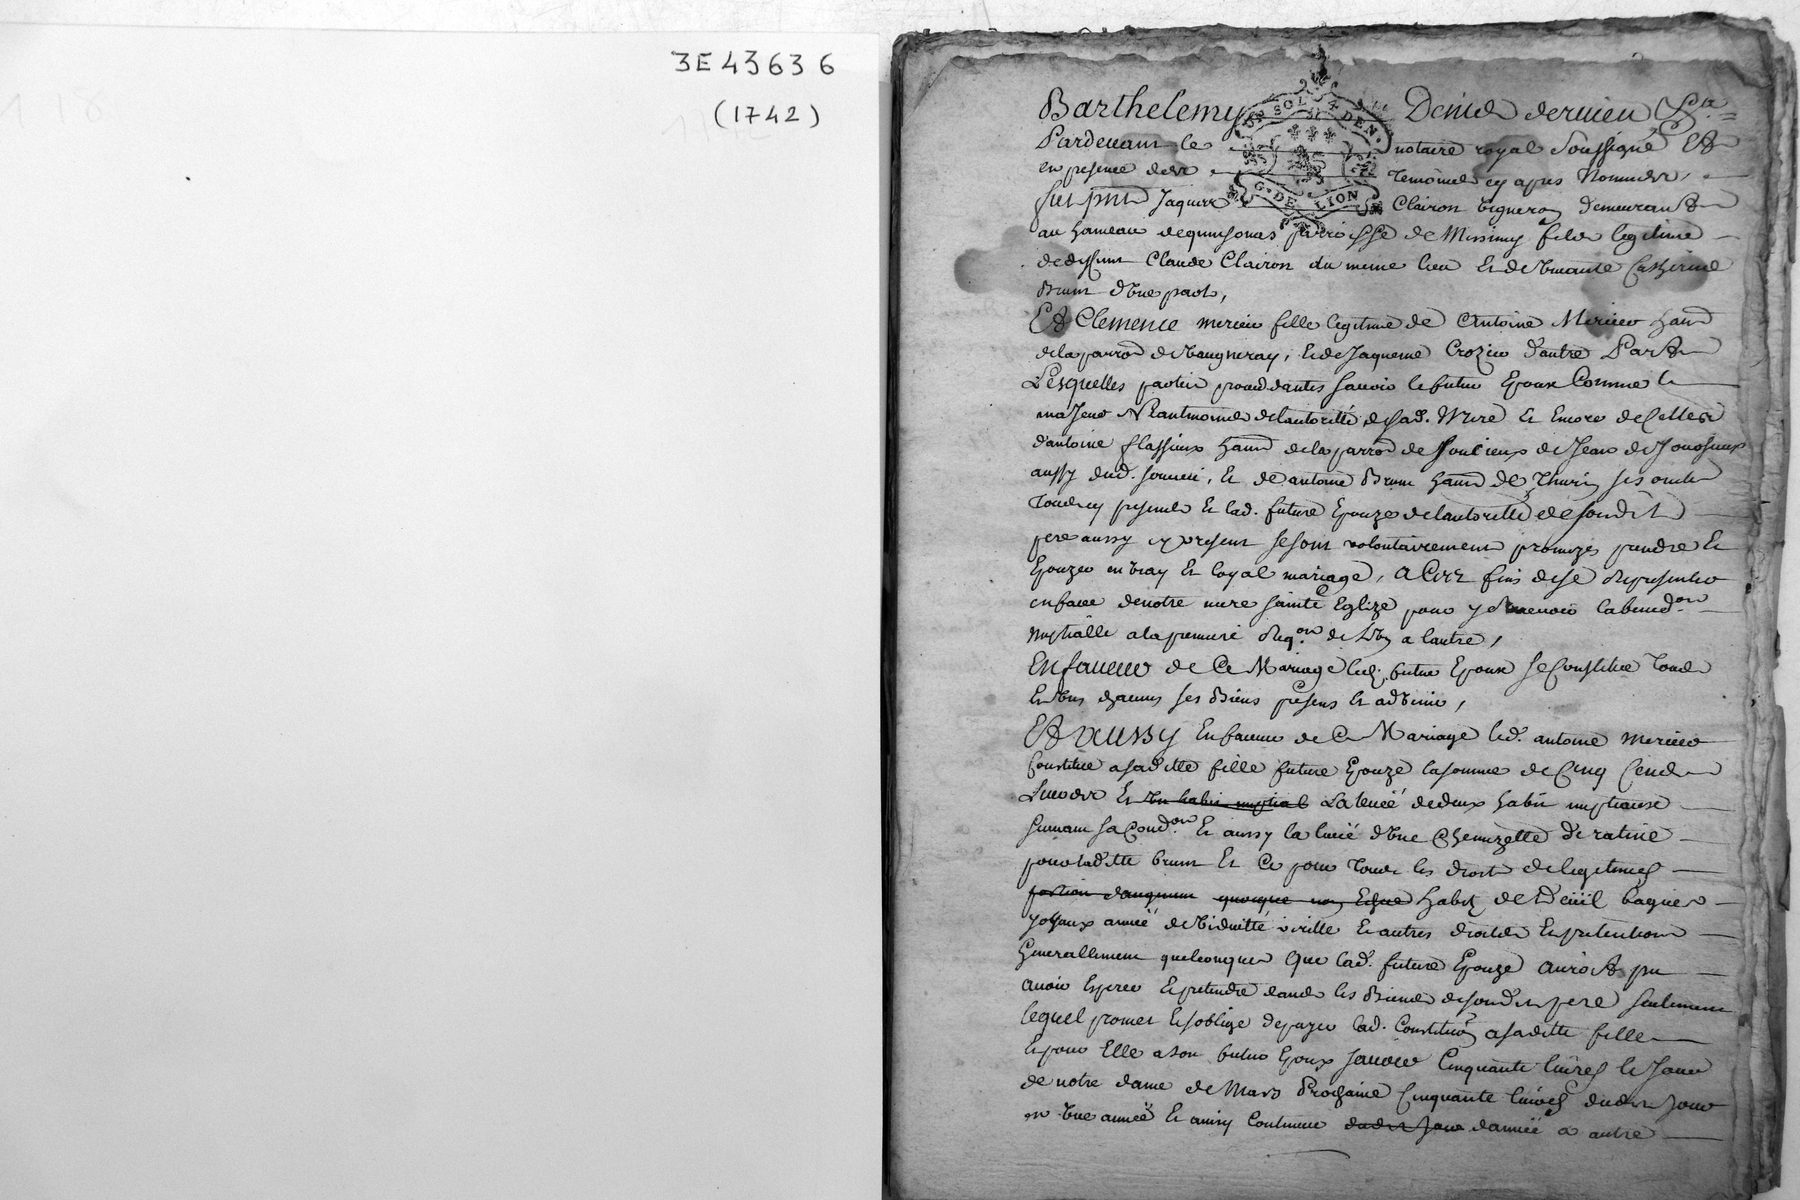 3E43636
(1742)
UN SOL 4 DEN.
G. DE LION
Barthelemy Denis dervieu
Pardevant le notaire royal soussigné Et
en presence des temoins cy apres nommes,
fut pnt Jaques Clairon vigneron demeurant
au hameau de quinsonas parroisse de Messimy fils legitime
de deffunt Claude Clairon du meme lieu et de vivante Catherine
Brun d'une part,
Et Clemence mercier fille legitime de Antoine Mercier habt
de la parrod de vaugneray, et de Jaqueme Crozier d'autre Part
Lesquelles parties procedantes savoir le futur Epoux Comme
majeur Neantmoins de lautorité de sad. Mere et Encore de Celles
d'antoine flassieux habt de la parrod de Soucieux de Jean de
aussy dud. soucieu, et de antoine Brun habt de Thurin ses oncles
tous cy presents et lad. future Epouze de lautorité de sondit
pere aussy cy present se sont volontairement promizes prendre et
Epouzer en vray et loyal mariage, a Ces fins de se representer
en face de notre mere sainte Eglize pour y recevoir la bened.on
nuptialle a la premiere requ.on de l'un a l'autre,
En faveur de Ce Mariage led. futur Epoux se Constitue tous
et uns chacuns ses Biens presens et advenir,
Et Aussy En faveur de Ce Mariage led. antoine mercier
Constitue a saditte fille future Epouze la somme de Cinq Cends
Livres et un habit nuptial La levée de deux habits nuptiaux
suivant sa Cond.on et aussy la levée d'une Chemizette de ratine
pour laditte brun et Ce pour tous les droits de legitimes
portion d'augment quoique non Echue habits de Deüil bagues
joyaux année de viduitté virille et autres droits et pretentions
Generallement quelconques que lad. future Epouze auroit pu
avoir Esperer et pretendre dans les Biens de sondit pere seulement
lequel promet et soblige de payer lad. Constitu.on a saditte fille
et pour Elle a son futur Epoux savoir Cinquante livres le Jour
de notre dame de Mars Prochaine Cinquante livres dudit jour
en une année et ainsy Continuer dudit jour d'année a autre